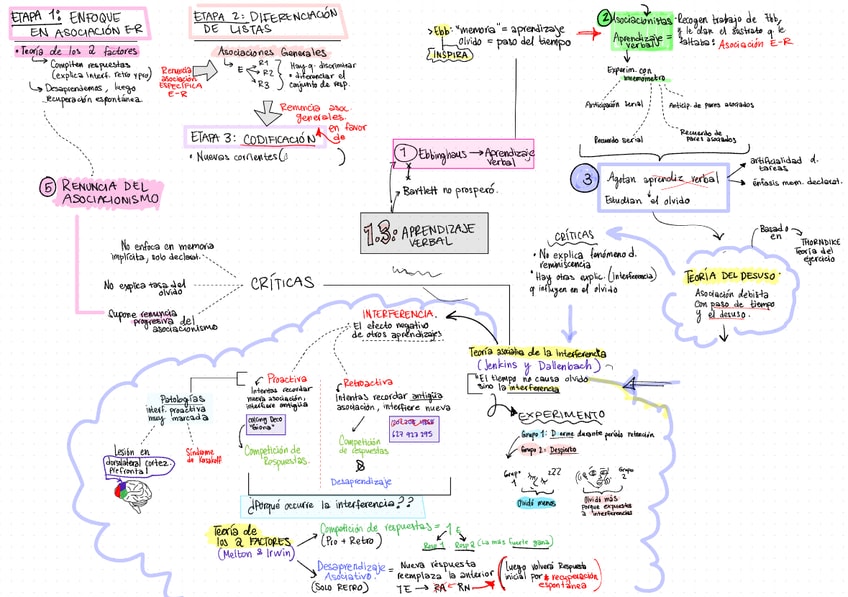 ETAPA 1: ENFOQUE
EN ASOCIACIÓN E-R
• Teoría de los 2 factores
Compiten respuestas
(explica interf. retro y pro)
Desaprendemos, luego
recuperación espontánea.
Renuncia
asociación
ESPECÍFICA
E-R
ETAPA 2: DIFERENCIACIÓN
DE LISTAS
Asociaciones Generales
E
R1
R2
R3
Hay q. discriminar
• diferenciar el
conjunto de resp.
Renuncia asoc.
generales.
en favor
de
ETAPA 3: CODIFICACIÓN
• Nuevas corrientes (
)
Ebb: "memoria" = aprendizaje
olvido = paso del tiempo
INSPIRA
2 Asociacionistas
Aprendizaje =
verbal
Recogen trabajo de Ebb,
y le dan el sustrato q le
faltaba: Asociación E-R
Experim. con
mnemómetro
Anticipación serial
Anticip. de pares asociados
Recuerdo serial
Recuerdo de
pares asociados
1 Ebbinghaus → Aprendizaje
verbal
Bartlett no prosperó.
1.3: APRENDIZAJE
VERBAL
3
Agotan aprendiz verbal
Estudian el olvido
artificialidad d.
tareas
énfasis mem. declarat.
5 RENUNCIA DEL
ASOCIACIONISMO
No enfoca en memoria
implícita, solo declarat.
No explica tasa del
olvido
Supone renuncia
progresiva del
asociacionismo
CRÍTICAS
CRÍTICAS
• No explica fenómeno d.
reminiscencia
• Hay otras explic. (interferencia)
q influyen en el olvido
Basado
en
THORNDIKE
Teoría del
ejercicio
TEORÍA DEL DESUSO
Asociación debilita
con paso de tiempo
y el desuso.
INTERFERENCIA.
El efecto negativo
de otros aprendizajes
Teoría asociativa de la interferencia
(Jenkins y Dallenbach)
"El tiempo no causa olvido
sino la interferencia
EXPERIMENTO
Grupo 1: Duerme durante período retención
Grupo 2: Despierto
Grupo
1
zzz
Grupo
2
Olvidó menos
Olvidó más
porque expuestos
a interferencias
Proactiva
Intentas recordar
nueva asociación,
interfiere antigua
Competición de
Respuestas.
Retroactiva
Intentas recordar antigua
asociación, interfiere nueva
627 927 295
Competición
de respuestas
Desaprendizaje
Patologías
interf. proactiva
muy marcada
Lesión en
dorsolateral cortez.
Prefrontal
Síndrome
de Korsakoff
¿Porqué occurre la interferencia??
Teoría de
los 2 FACTORES
(Melton & Irwin)
Competición de respuestas =
(Pro + Retro)
1 E
Resp 1
Resp 2 (La más fuerte gana)
Desaprendizaje
Asociativo.
(SOLO RETRO)
= Nueva respuesta
reemplaza la anterior
TE → RA RN
(luego volverá Respuesta
inicial por recuperación
espontánea)